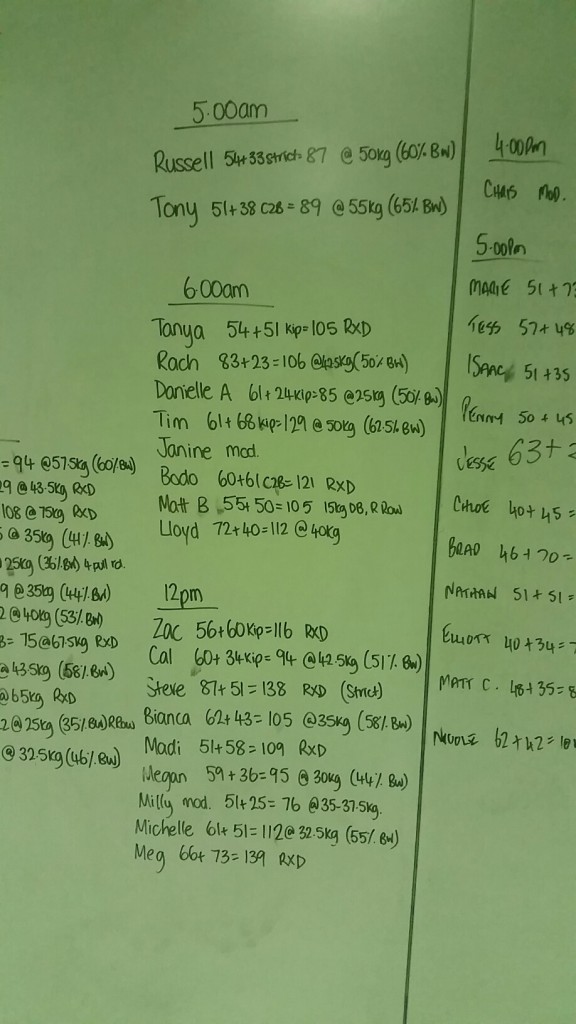 = 94 @57.5kg (60% BW)
29 @ 43.5kg RXD
108 @ 75kg RXD
@ 35kg (41% BW)
25kg (36% BW) 4 pull rd.
9 @ 35kg (44% BW)
2 @ 40kg (53% BW)
= 75 @ 67.5kg RXD
@ 43.5kg (58% BW)
@ 65kg RXD
2 @ 25kg (35% BW) R Row
@ 32.5kg (46% BW)
5.00am
Russell 54+33 strict = 87 @ 50kg (60% BW)
Tony 51+38 C2B = 89 @ 55kg (65% BW)
6.00am
Tanya 54+51 kip = 105 RXD
Rach 83+23 = 106 @42.5kg (50% BW)
Danielle A 61+24 kip = 85 @25kg (50% BW)
Tim 61+68 kip = 129 @ 50kg (62.5% BW)
Janine mod.
Bodo 60+61 C2B = 121 RXD
Matt B 55+50 = 105 15kg DB, R Row
Lloyd 72+40 = 112 @ 40kg
12pm
Zac 56+60 Kip = 116 RXD
Cal 60+34 kip = 94 @ 42.5kg (51% BW)
Steve 87+51 = 138 RXD (Strict)
Bianca 62+43 = 105 @35kg (58% BW)
Madi 51+58 = 109 RXD
Megan 59+36 = 95 @ 30kg (44% BW)
Milly mod. 51+25 = 76 @35-37.5kg.
Michelle 61+51 = 112 @ 32.5kg (55% BW)
Meg 66+73 = 139 RXD
4.00pm
CHRIS MOD.
5.00pm
MARIE 51+73
TESS 57+48
ISAAC 51+35
PENNY 50+45
JESSE 63+
CHLOE 40+45 =
BRAD 46+70 =
NATHAN 51+51 =
ELLIOTT 40+34 = 7
MATT C. 48+35 = 8
NICOLE 62+42 = 10